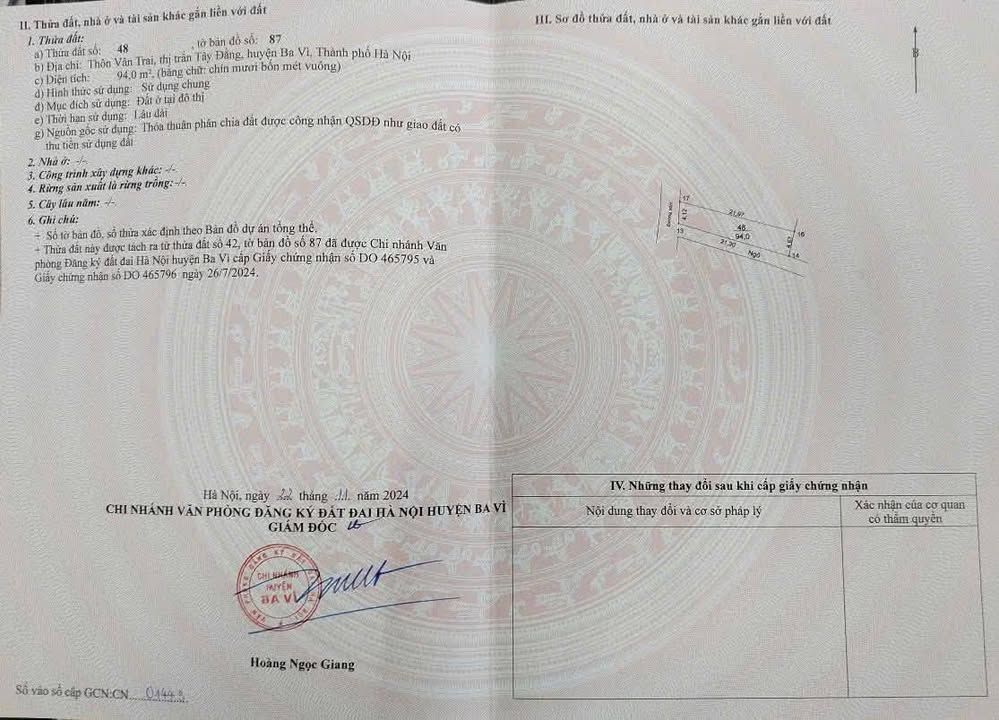 II. Thửa đất, nhà ở và tài sản khác gắn liền với đất
1. Thửa đất:
a) Thửa đất số: 48 , tờ bản đồ số: 87
b) Địa chỉ: Thôn Vân Trai, thị trấn Tây Đằng, huyện Ba Vì, Thành phố Hà Nội
c) Diện tích: 94,0 m², (bằng chữ: chín mươi bốn mét vuông)
d) Hình thức sử dụng: Sử dụng chung
đ) Mục đích sử dụng: Đất ở tại đô thị
e) Thời hạn sử dụng: Lâu dài
g) Nguồn gốc sử dụng: Thỏa thuận phân chia đất được công nhận QSDĐ như giao đất có
thu tiền sử dụng đất
2. Nhà ở: -/-.
3. Công trình xây dựng khác: -/-.
4. Rừng sản xuất là rừng trồng: -/-
5. Cây lâu năm: -/-.
6. Ghi chú:
+ Số tờ bản đồ, số thửa xác định theo Bản đồ dự án tổng thể.
+ Thửa đất này được tách ra từ thửa đất số 42, tờ bản đồ số 87 đã được Chi nhánh Văn
phòng Đăng ký đất đai Hà Nội huyện Ba Vì cấp Giấy chứng nhận số DO 465795 và
Giấy chứng nhận số DO 465796 ngày 26/7/2024.
Hà Nội, ngày 22 tháng 11 năm 2024
CHI NHÁNH VĂN PHÒNG ĐĂNG KÝ ĐẤT ĐAI HÀ NỘI HUYỆN BA VÌ
GIÁM ĐỐC
CHI NHÁNH
HUYỆN
BA VÌ
Hoàng Ngọc Giang
Số vào sổ cấp GCN:CN
III. Sơ đồ thửa đất, nhà ở và tài sản khác gắn liền với đất
B
17
21,97
16
4,12
48
94,0
13
21,30
14
Ngõ
IV. Những thay đổi sau khi cấp giấy chứng nhận
Nội dung thay đổi và cơ sở pháp lý
Xác nhận của cơ quan
có thẩm quyền